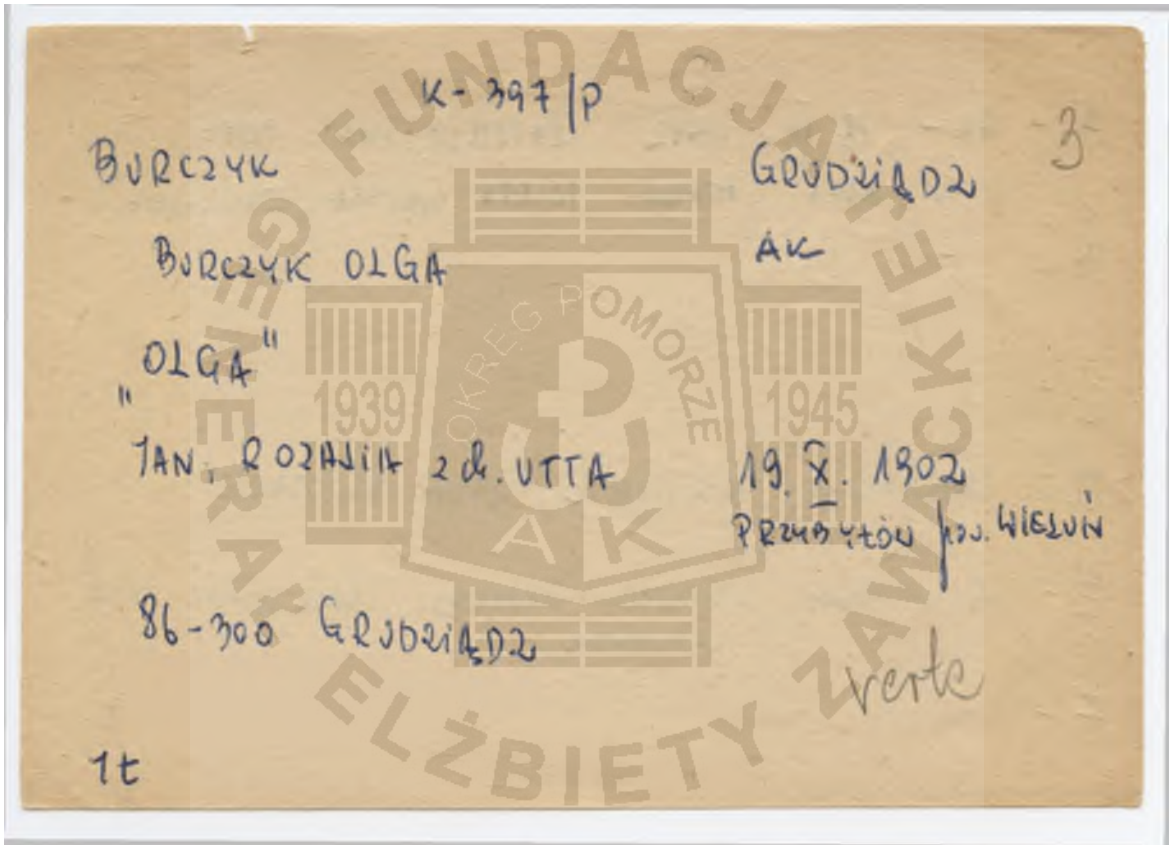 K-397/P
-3-
BURCZYK GRUDZIĄDZ
BURCZYK OLGA AK
„OLGA"
JAN, ROZALIA z d. UTTA 19. X. 1902
PRZYBYŁÓW pow. WIELUŃ
86-300 GRUDZIĄDZ
verte
1t
FUNDACJA
GENERAŁ ELŻBIETY ZAWACKIEJ
OKRĘG POMORZE
1939 1945
AK